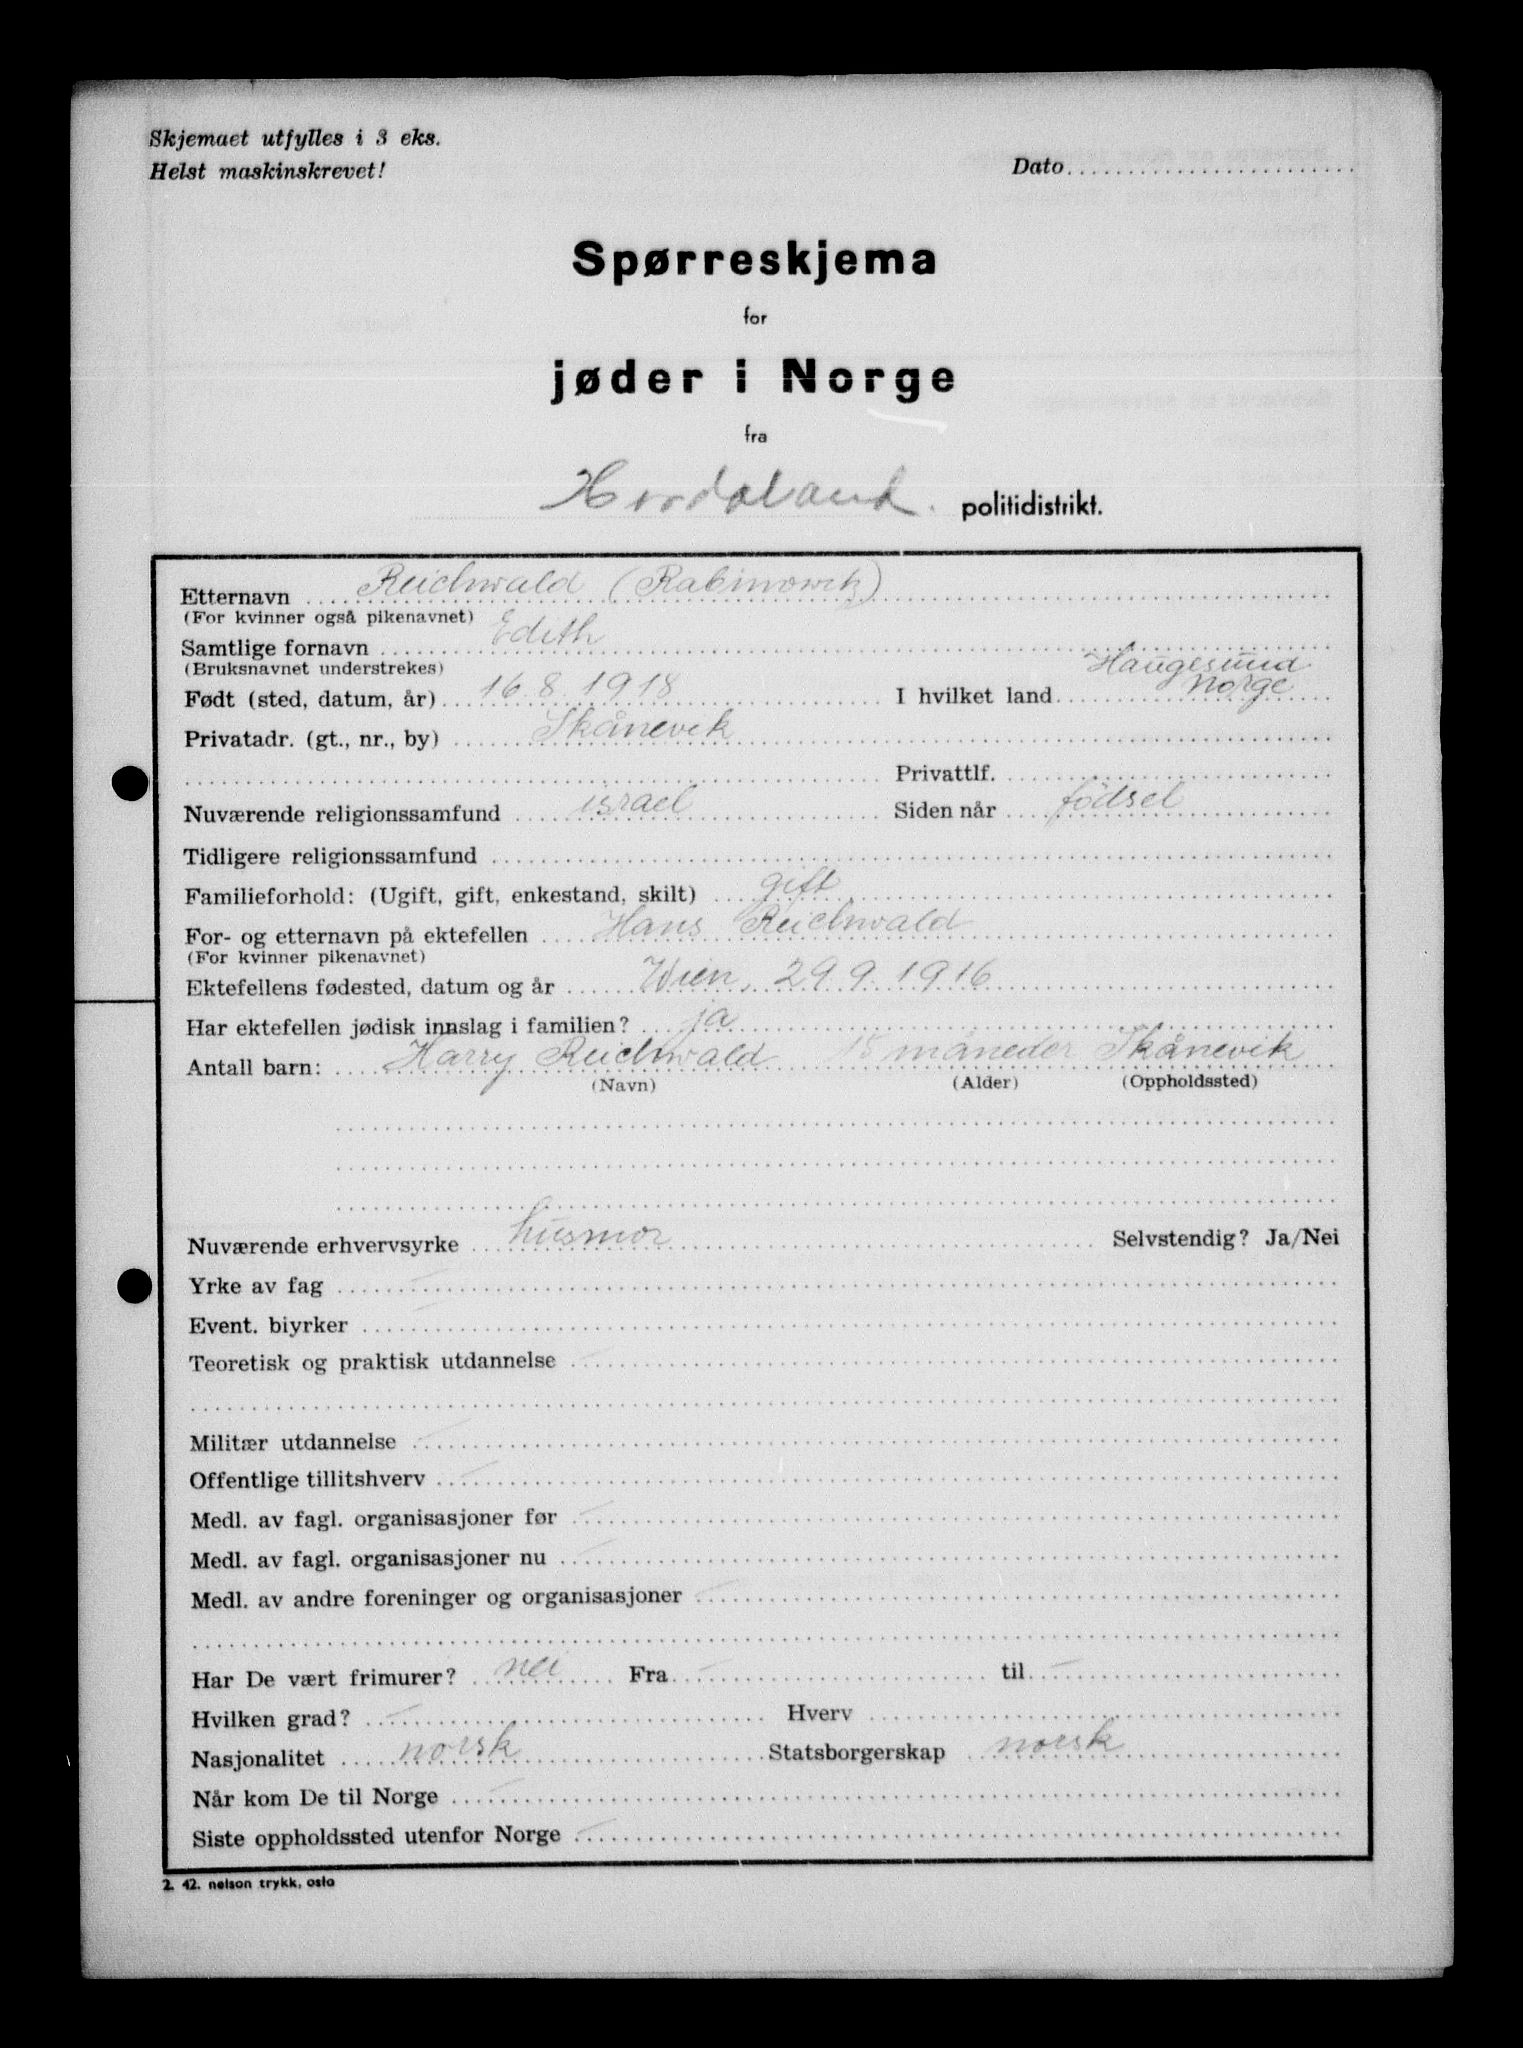 Skjemaet utfylles i 3 eks.
Helst maskinskrevet!
Dato
Spørreskjema
for
jøder i Norge
fra
Hordaland. politidistrikt.
Etternavn Reichwald (Rabinowitz)
(For kvinner også pikenavnet)
Samtlige fornavn Edith
(Bruksnavnet understrekes)
Født (sted, datum, år) 16.8.1918 I hvilket land Haugesund Norge
Privatadr. (gt., nr., by) Skånevik
Privattlf.
Nuværende religionssamfund israel Siden når fødsel
Tidligere religionssamfund
Familieforhold: (Ugift, gift, enkestand, skilt) gift
For- og etternavn på ektefellen Hans Reichwald
(For kvinner pikenavnet)
Ektefellens fødested, datum og år Wien, 29.9.1916
Har ektefellen jødisk innslag i familien? ja
Antall barn: Harry Reichwald 15 måneder Skånevik
(Navn) (Alder) (Oppholdssted)
Nuværende erhvervsyrke husmor Selvstendig? Ja/Nei
Yrke av fag –
Event. biyrker –
Teoretisk og praktisk utdannelse –
Militær utdannelse –
Offentlige tillitshverv –
Medl. av fagl. organisasjoner før –
Medl. av fagl. organisasjoner nu –
Medl. av andre foreninger og organisasjoner –
Har De vært frimurer? nei Fra – til –
Hvilken grad? – Hverv
Nasjonalitet norsk Statsborgerskap norsk
Når kom De til Norge –
Siste oppholdssted utenfor Norge –
2. 42. nelson trykk, oslo